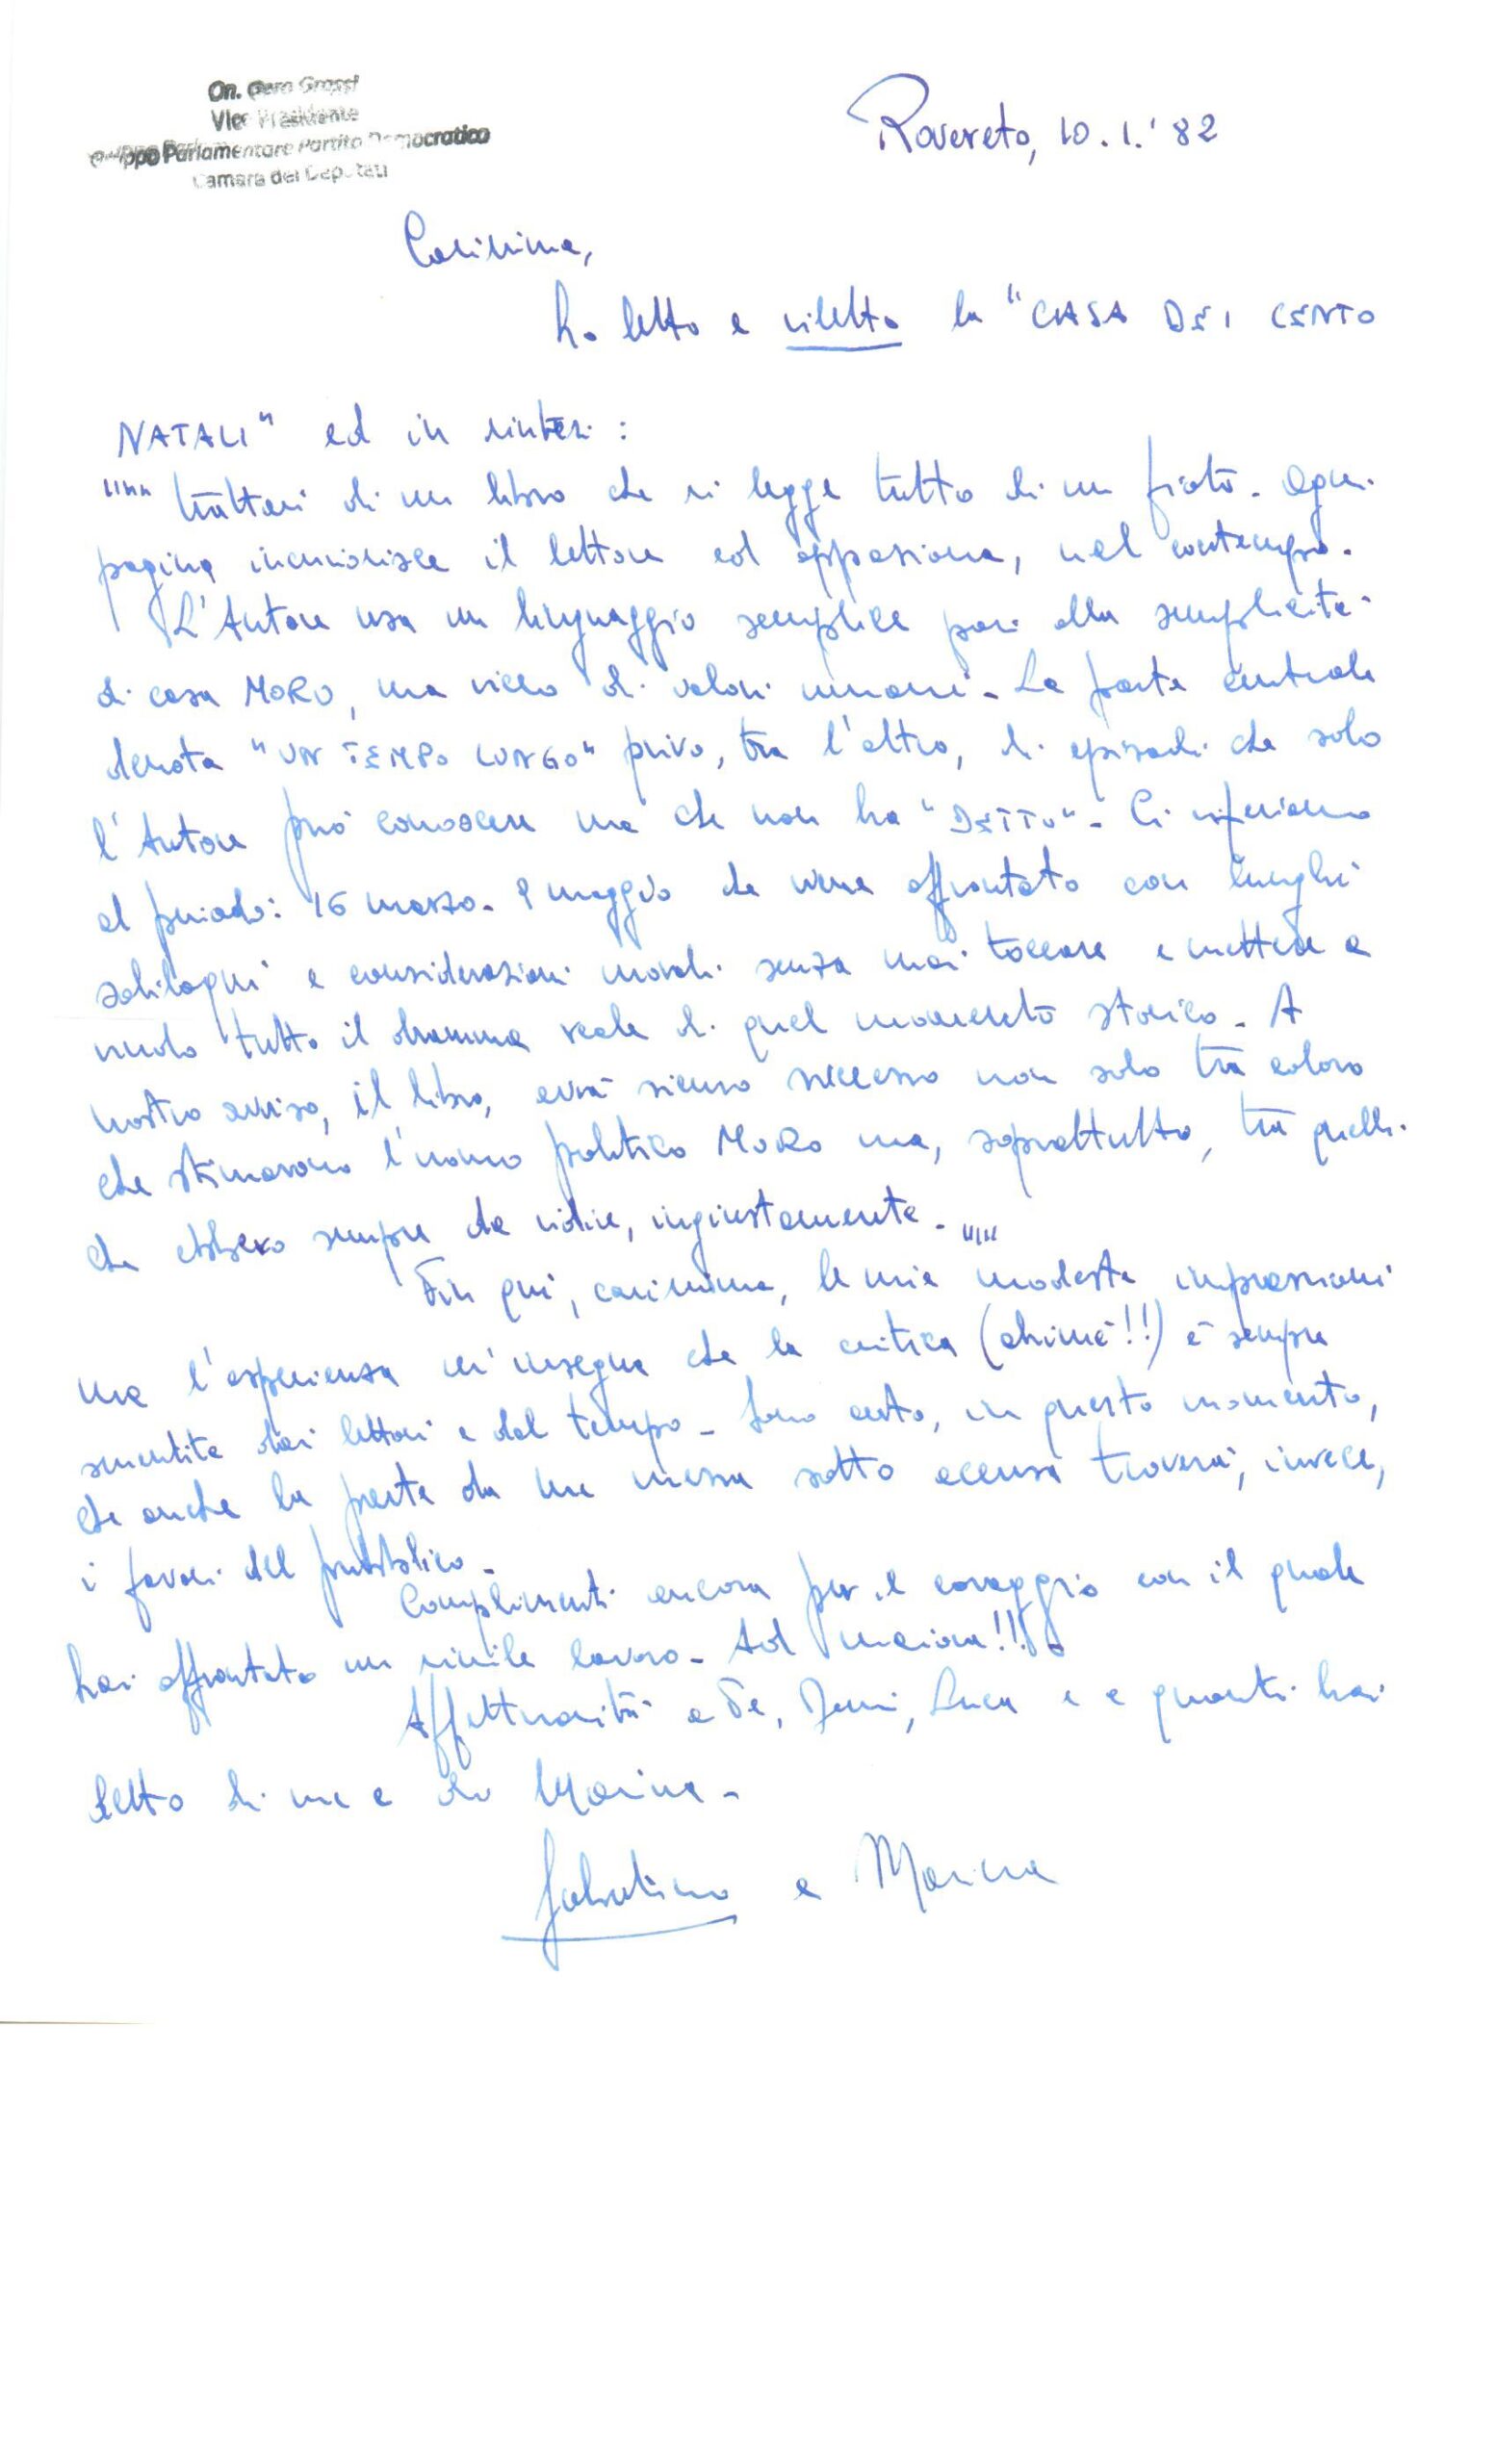 On. Gero Grassi
Vice Presidente
Gruppo Parlamentare Partito Democratico
Camera dei Deputati
Rovereto, 10.1.'82
Carissima,
ho letto e riletto la "CASA DEI CENTO
NATALI" ed in sintesi:
"" trattasi di un libro che si legge tutto di un fiato. Ogni
pagina incuriosisce il lettore ed appassiona, nel contempo.
L'Autore usa un linguaggio semplice pari alla semplicità
di casa MORO, ma ricco di valori umani. La parte centrale
denota "UN TEMPO LUNGO" privo, tra l'altro, di episodi che solo
l'Autore può conoscere ma che non ha "DETTO". Ci riferiamo
al periodo: 16 marzo - 9 maggio che viene affrontato con lunghi
soliloqui e considerazioni morali senza mai toccare e mettere a
nudo tutto il dramma reale di quel momento storico. A
nostro avviso, il libro, avrà sicuro successo non solo tra coloro
che stimavano l'uomo politico MORO ma, soprattutto, tra quelli
che ebbero sempre da ridire, ingiustamente. ""
Fin qui, carissima, le mie modeste impressioni
ma l'esperienza m'insegna che la critica (ahimè!!) è sempre
smentita dai lettori e dal tempo. Sono certo, in questo momento,
che anche la parte da me messa sotto accusa troverà, invece,
i favori del pubblico.
Complimenti ancora per il coraggio con il quale
hai affrontato un simile lavoro. Ad maiora!!!
Affettuosità a Te, Luca e a quanti hai
detto di me e di Marina.
Sabatino e Marina